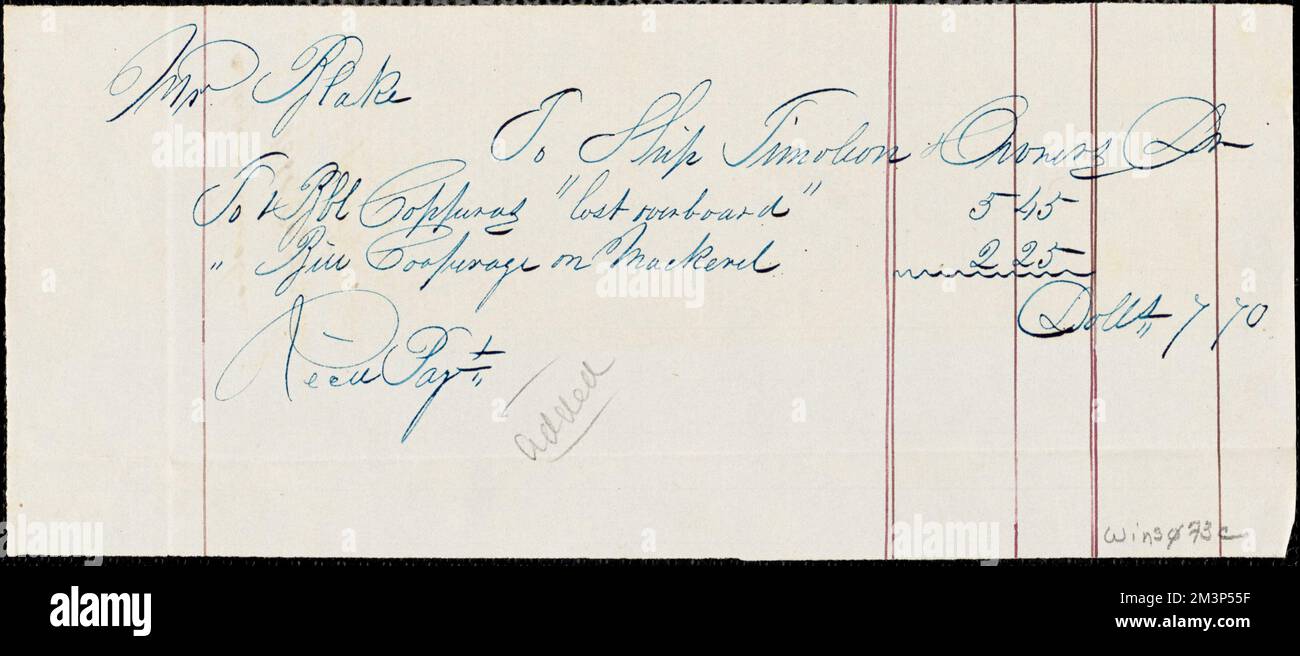 Mr Blake
To Ship Timoleon & Owners Dr
To 1 Bbl Copperas "lost overboard" 5 45
" Bill Cooperage on Mackerel 2 25
Dolls 7 70
Recd Payt
added
Wins073c
alamy
Image ID: 2M3P55F
www.alamy.com